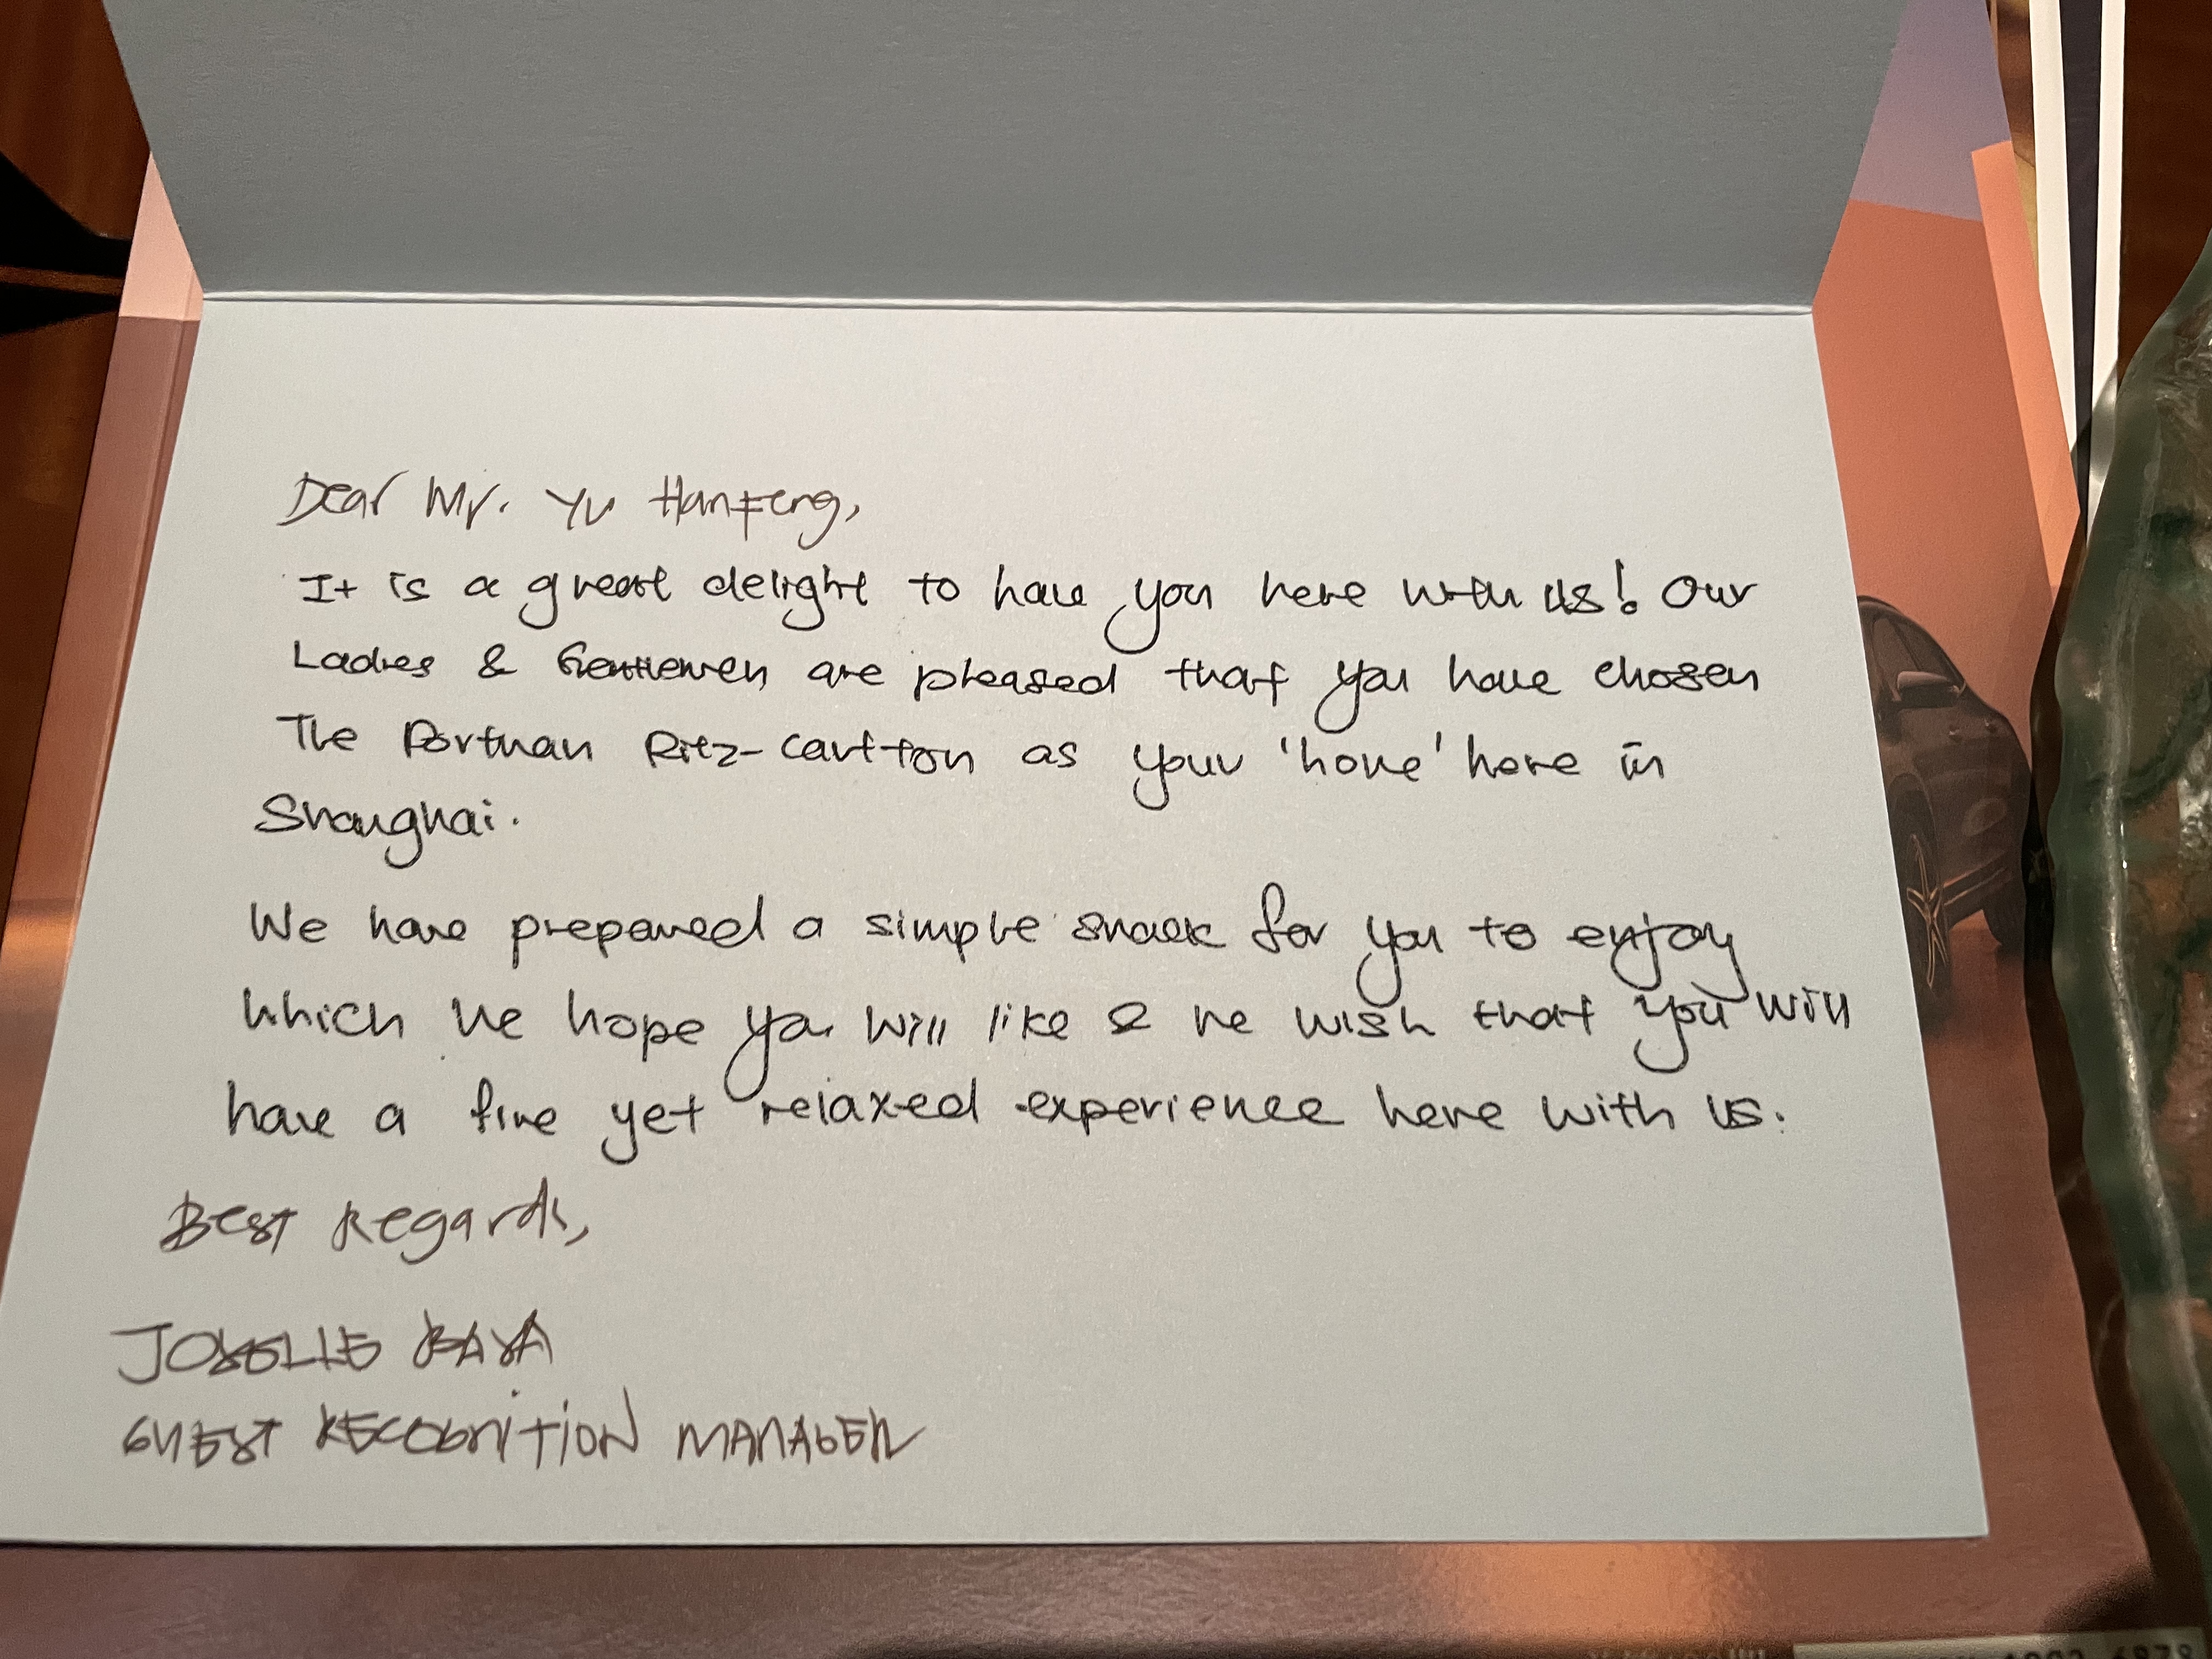 Dear Mr. Yu Hanfeng,
It is a great delight to have you here with us! Our
Ladies & Gentlemen are pleased that you have chosen
The Portman Ritz-Carlton as your 'home' here in
Shanghai.
We have prepared a simple snack for you to enjoy
which we hope you will like & we wish that you will
have a fine yet relaxed experience here with us.
Best Regards,
JOYELLE
GUEST RECOGNITION MANAGER